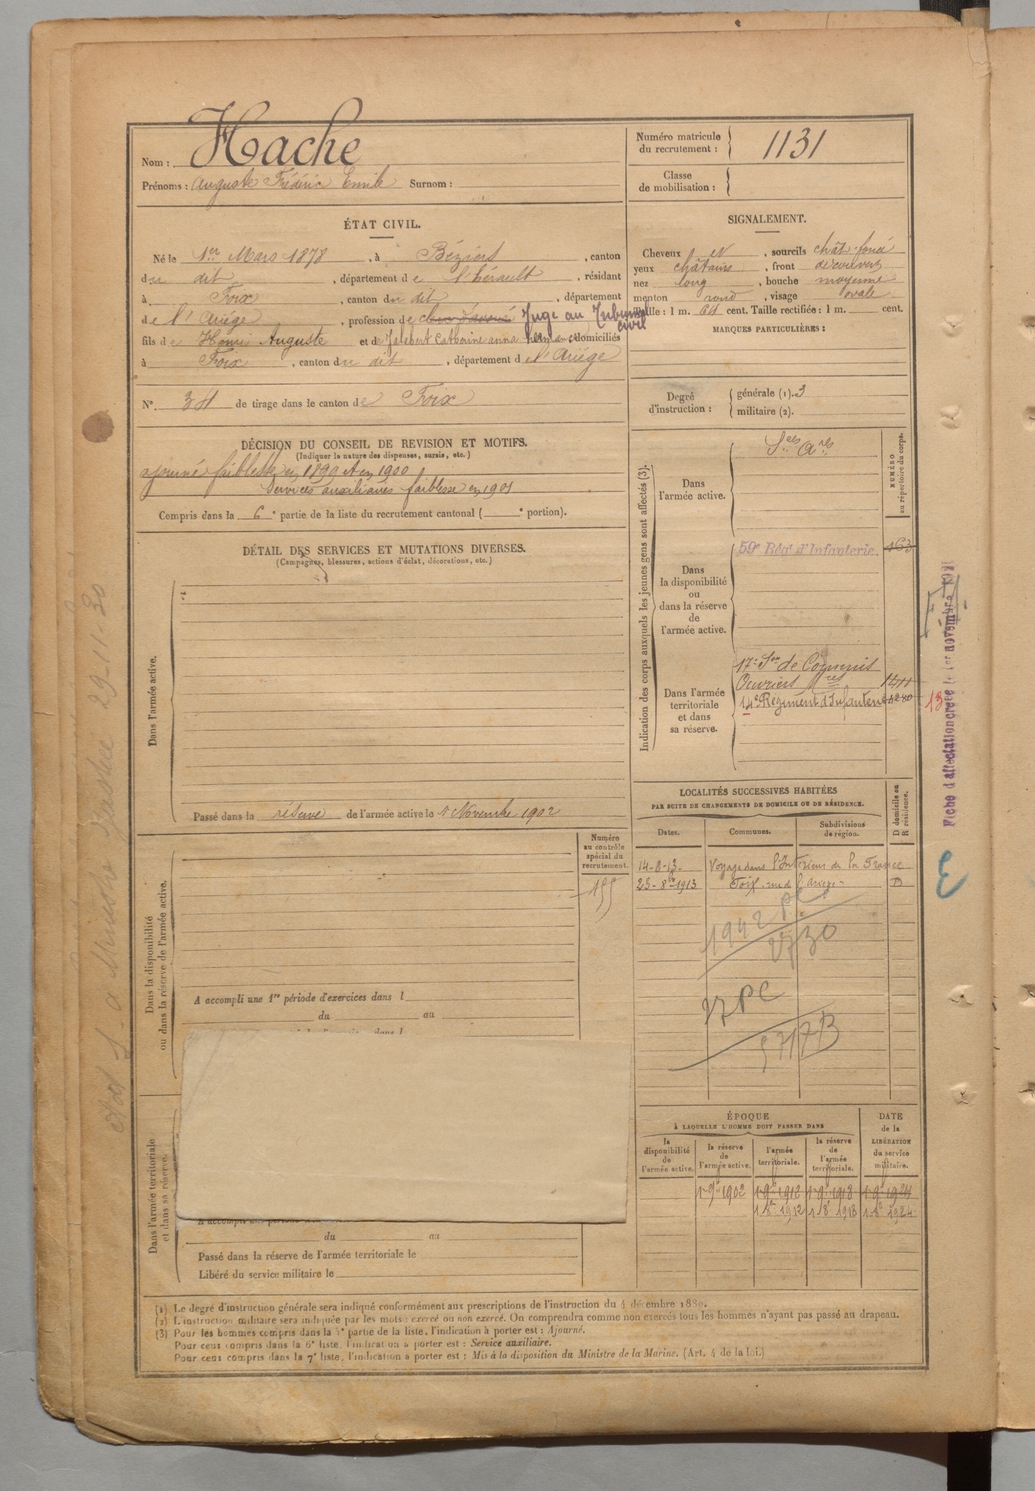 Nom : Hache
Prénoms : Auguste Frédéric Emile Surnom :
Numéro matricule du recrutement : 1131
Classe de mobilisation :
ÉTAT CIVIL.
Né le 1er Mars 1878, à Béziers, canton
du dit, département de l'hérault, résidant
à Foix, canton du dit, département
de l'Ariége, profession de clerc d'avoué Juge au Tribunal civil
fils de Henri Auguste et de Jalabert Catherine anna, domiciliés
à Foix, canton du dit, département de l'Ariége
N° 34 de tirage dans le canton de Foix
SIGNALEMENT.
Cheveux et, sourcils chât. foncé
yeux châtains, front découvert
nez long, bouche moyenne
menton rond, visage ovale
Taille : 1 m. 64 cent. Taille rectifiée : 1 m. cent.
MARQUES PARTICULIÈRES :
Degré d'instruction : générale (1). 3
militaire (2).
DÉCISION DU CONSEIL DE REVISION ET MOTIFS.
(Indiquer la nature des dispenses, sursis, etc.)
ajourné faiblesse en 1899 et en 1900
Services auxiliaires faiblesse en 1901
Compris dans la 6e partie de la liste du recrutement cantonal ( e portion).
DÉTAIL DES SERVICES ET MUTATIONS DIVERSES.
(Campagnes, blessures, actions d'éclat, décorations, etc.)
Dans l'armée active.
Passé dans la réserve de l'armée active le 1 Novembre 1902
Indication des corps auxquels les jeunes gens sont affectés (3).
NUMÉRO au répertoire du corps.
Dans l'armée active.
Sces ares
Dans la disponibilité ou dans la réserve de l'armée active.
59e Régt d'Infanterie. 163
Dans l'armée territoriale et dans sa réserve.
17e Son de Commis
Ouvriers 1411
14e Régiment d'Infanterie
13
Fiche d'affectation créée le 1er novembre
LOCALITÉS SUCCESSIVES HABITÉES
PAR SUITE DE CHANGEMENTS DE DOMICILE OU DE RÉSIDENCE.
Dates. Communes. Subdivisions de région. D domicile ou R résidence.
14-8-13. Voyage dans l'Intérieur de la France
23-8bre 1913 Foix, rue de l'Ariège D
Dans la disponibilité ou dans la réserve de l'armée active.
Numéro au contrôle spécial du recrutement.
155
A accompli une 1re période d'exercices dans l
du au
Dans l'armée territoriale et dans sa réserve.
du au
Passé dans la réserve de l'armée territoriale le
Libéré du service militaire le
ÉPOQUE
À LAQUELLE L'HOMME DOIT PASSER DANS
la disponibilité de l'armée active.
la réserve de l'armée active.
l'armée territoriale.
la réserve de l'armée territoriale.
DATE de la LIBÉRATION du service militaire.
1er 9bre 1902 1er 9bre 1912 1er 9bre 1918 1er 9bre 1924
1er 8bre 1912 1er 8bre 1918 1er 8bre 1924
(1) Le degré d'instruction générale sera indiqué conformément aux prescriptions de l'instruction du 4 décembre 1889.
(2) L'instruction militaire sera indiquée par les mots : exercé ou non exercé. On comprendra comme non exercés tous les hommes n'ayant pas passé au drapeau.
(3) Pour les hommes compris dans la 5e partie de la liste, l'indication à porter est : Ajourné.
Pour ceux compris dans la 6e liste, l'indication à porter est : Service auxiliaire.
Pour ceux compris dans la 7e liste, l'indication à porter est : Mis à la disposition du Ministre de la Marine. (Art. 4 de la loi.)